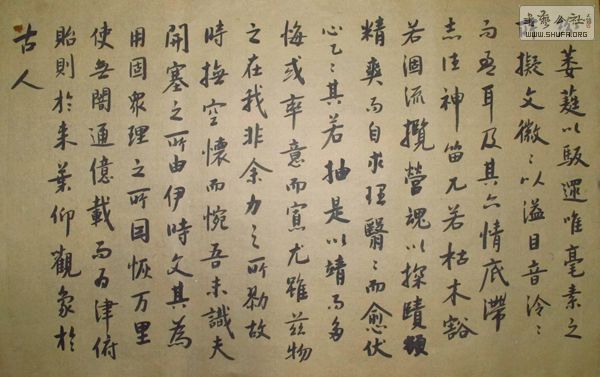 萎蕤以馺遝唯毫素之
擬文微〻以溢目音泠〻
而盈耳及其六情底滯
志往神留兀若枯木豁
若涸流攬營魂以探賾頓
精爽而自求理翳〻而愈伏
心乙〻其若抽是以靖而多
悔或率意而寡尤雖茲物
之在我非余力之所勠故
時撫空懷而惋吾未識夫
開塞之所由伊時文其為
用固眾理之所因恢万里
使無閡通億載而為津俯
貽則於來葉仰觀象於
古人
书法公社
WWW.SHUFA.ORG